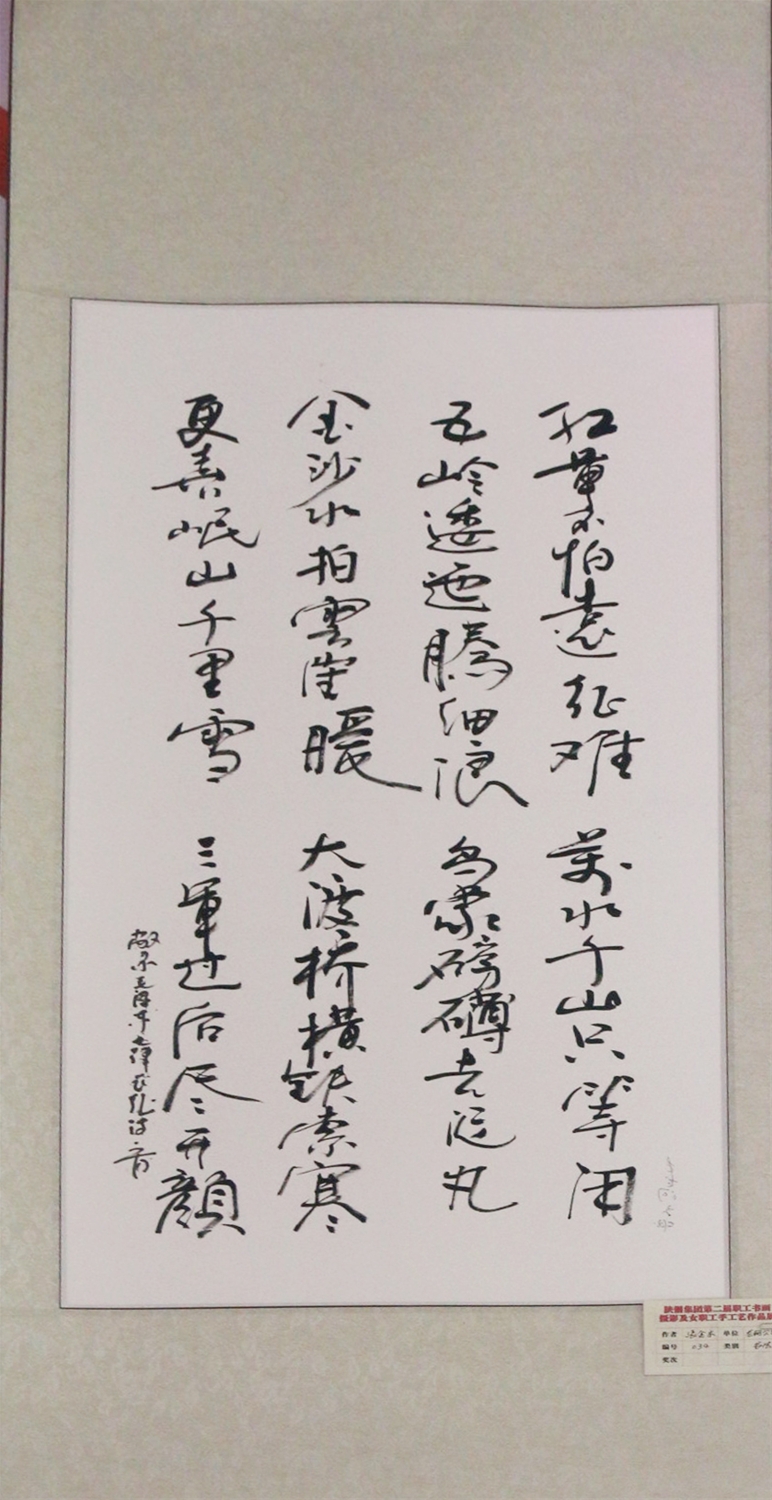 红軍不怕遠征难 萬水千山只等闲
五岭逶迤腾细浪 乌蒙磅礴走泥丸
金沙水拍雲崖暖 大渡桥横铁索寒
更喜岷山千里雪 三軍过后尽开顏
七律长征诗
陕钢集团第二届职工书画
摄影及女职工手工艺作品展
作者 单位
编号 034 类别
奖次